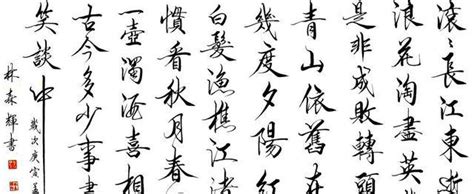 滚〻長江东
浪花淘盡英
是非成敗轉
青山依舊在
幾度夕陽紅
白髮漁樵江渚
慣看秋月春
一壺濁酒喜相
古今多少事
笑談中
歲次庚寅
林森輝書